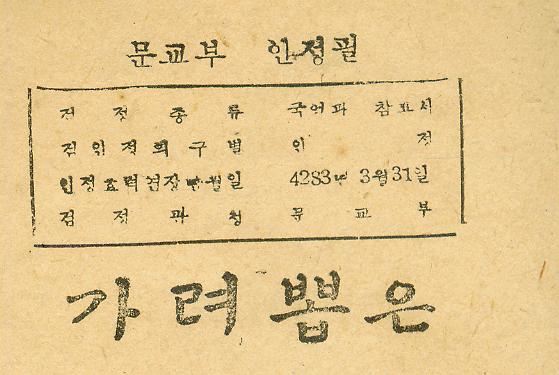 문교부 인정필
검정종류 국어과 참고서
검인정의구별 인정
인정효력연장년월일 4283년 3월31일
검정관청 문교부
가려뽑은